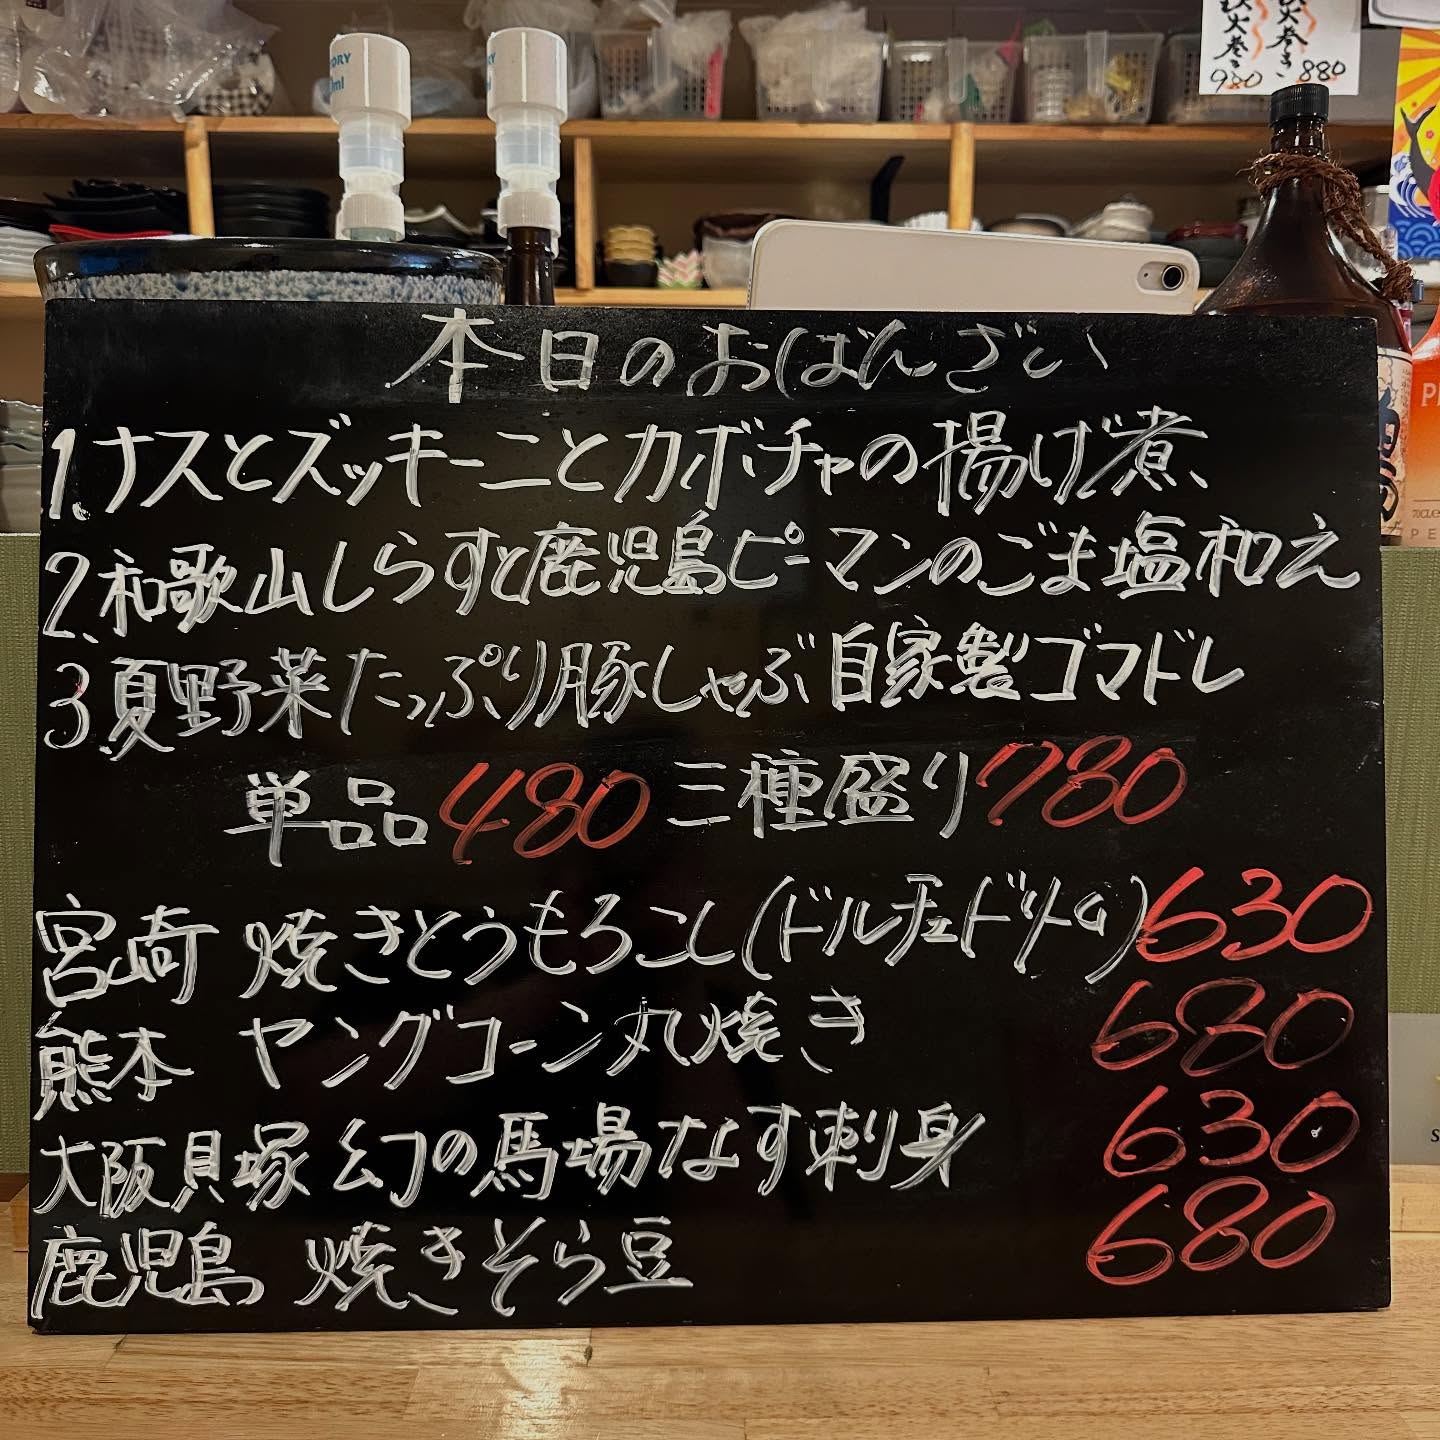 鉄火巻き
980
880
本日のおばんざい
1.ナスとズッキーニとカボチャの揚げ煮
2.和歌山しらすと鹿児島ピーマンのごま塩和え
3.夏野菜たっぷり豚しゃぶ自家製ゴマドレ
単品480 三種盛り780
宮崎 焼きとうもろこし(ドルチェドリーム)630
熊本 ヤングコーン丸焼き 680
大阪貝塚 幻の馬場なす刺身 630
鹿児島 焼きそら豆 680